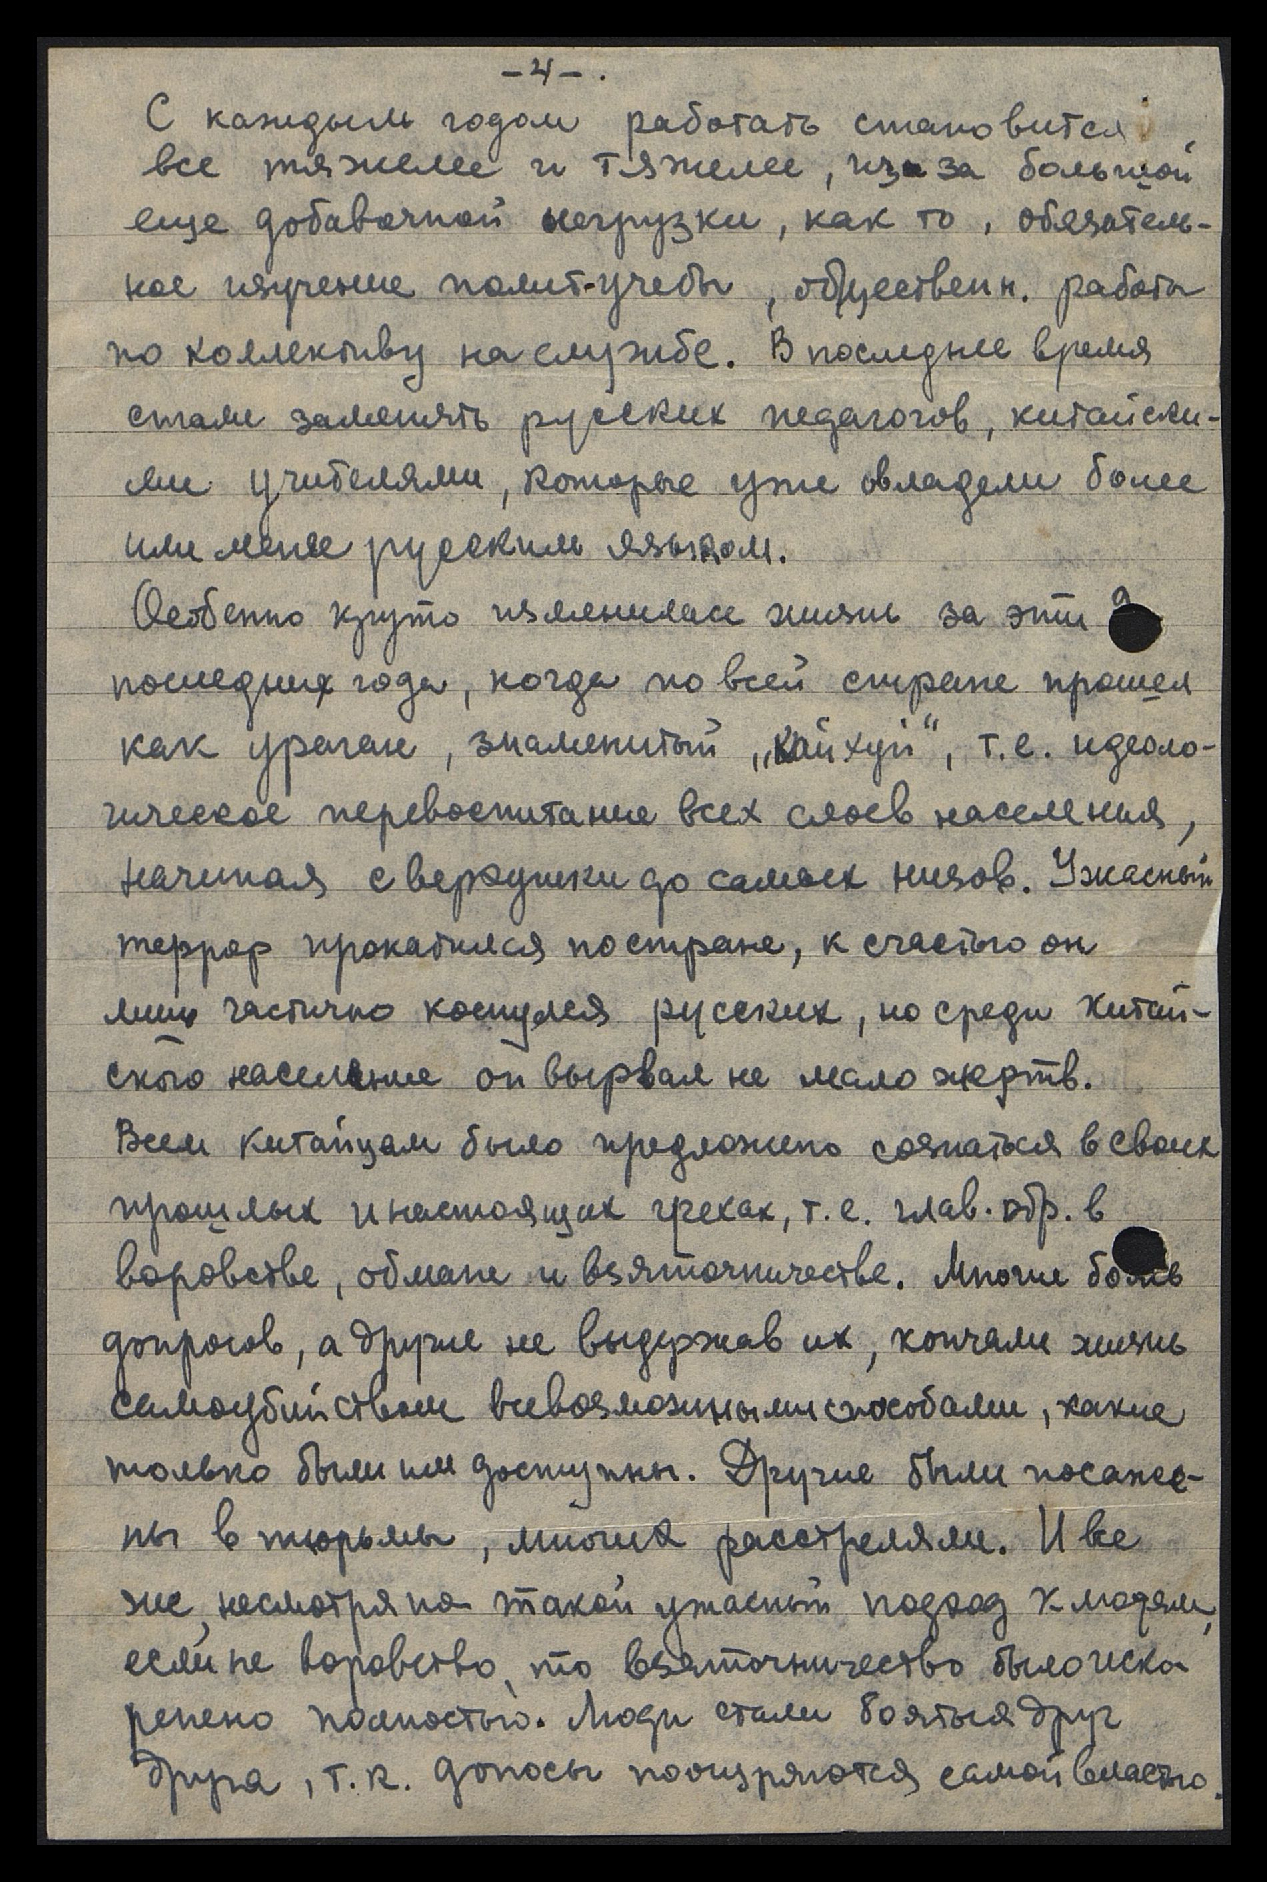 -4-.
С каждым годом работать становится
все тяжелее и тяжелее, из-за большой
еще добавочной нагрузки, как то, обязатель-
ное изучение полит-учебы, обществени. работы
по коллективу на службе. В последнее время
стали заменять русских педагогов, китайски-
ми учителями, которые уже овладели более
или менее русским языком.
Особенно круто изменилась жизнь за эти
последних года, когда по всей стране прошел
как ураган, знаменитый „Кайхуй“, т.е. идеоло-
гическое перевоспитание всех слоев населения,
начиная с верхушки до самых низов. Ужасный
террор прокатился по стране, к счастью он
лишь частично коснулся русских, но среди Китай-
ского население он вырвал не мало жертв.
Всем китайцам было предложено сознаться в своих
прошлых и настоящих грехах, т.е. глав. обр. в
воровстве, обмане и взяточничестве. Многие
допросов, а другие не выдержав их, кончали жизнь
самоубийством всевозможными способами, какие
только были им доступны. Другие были посаже-
ны в тюрьмы, многих расстреляли. И все
же, несмотря на такой ужасный подход к людям,
если не воровство, то взяточничество было иско
ренено полностью. Люди стали бояться друг
друга, т.к. доносы поощряются самой властью.